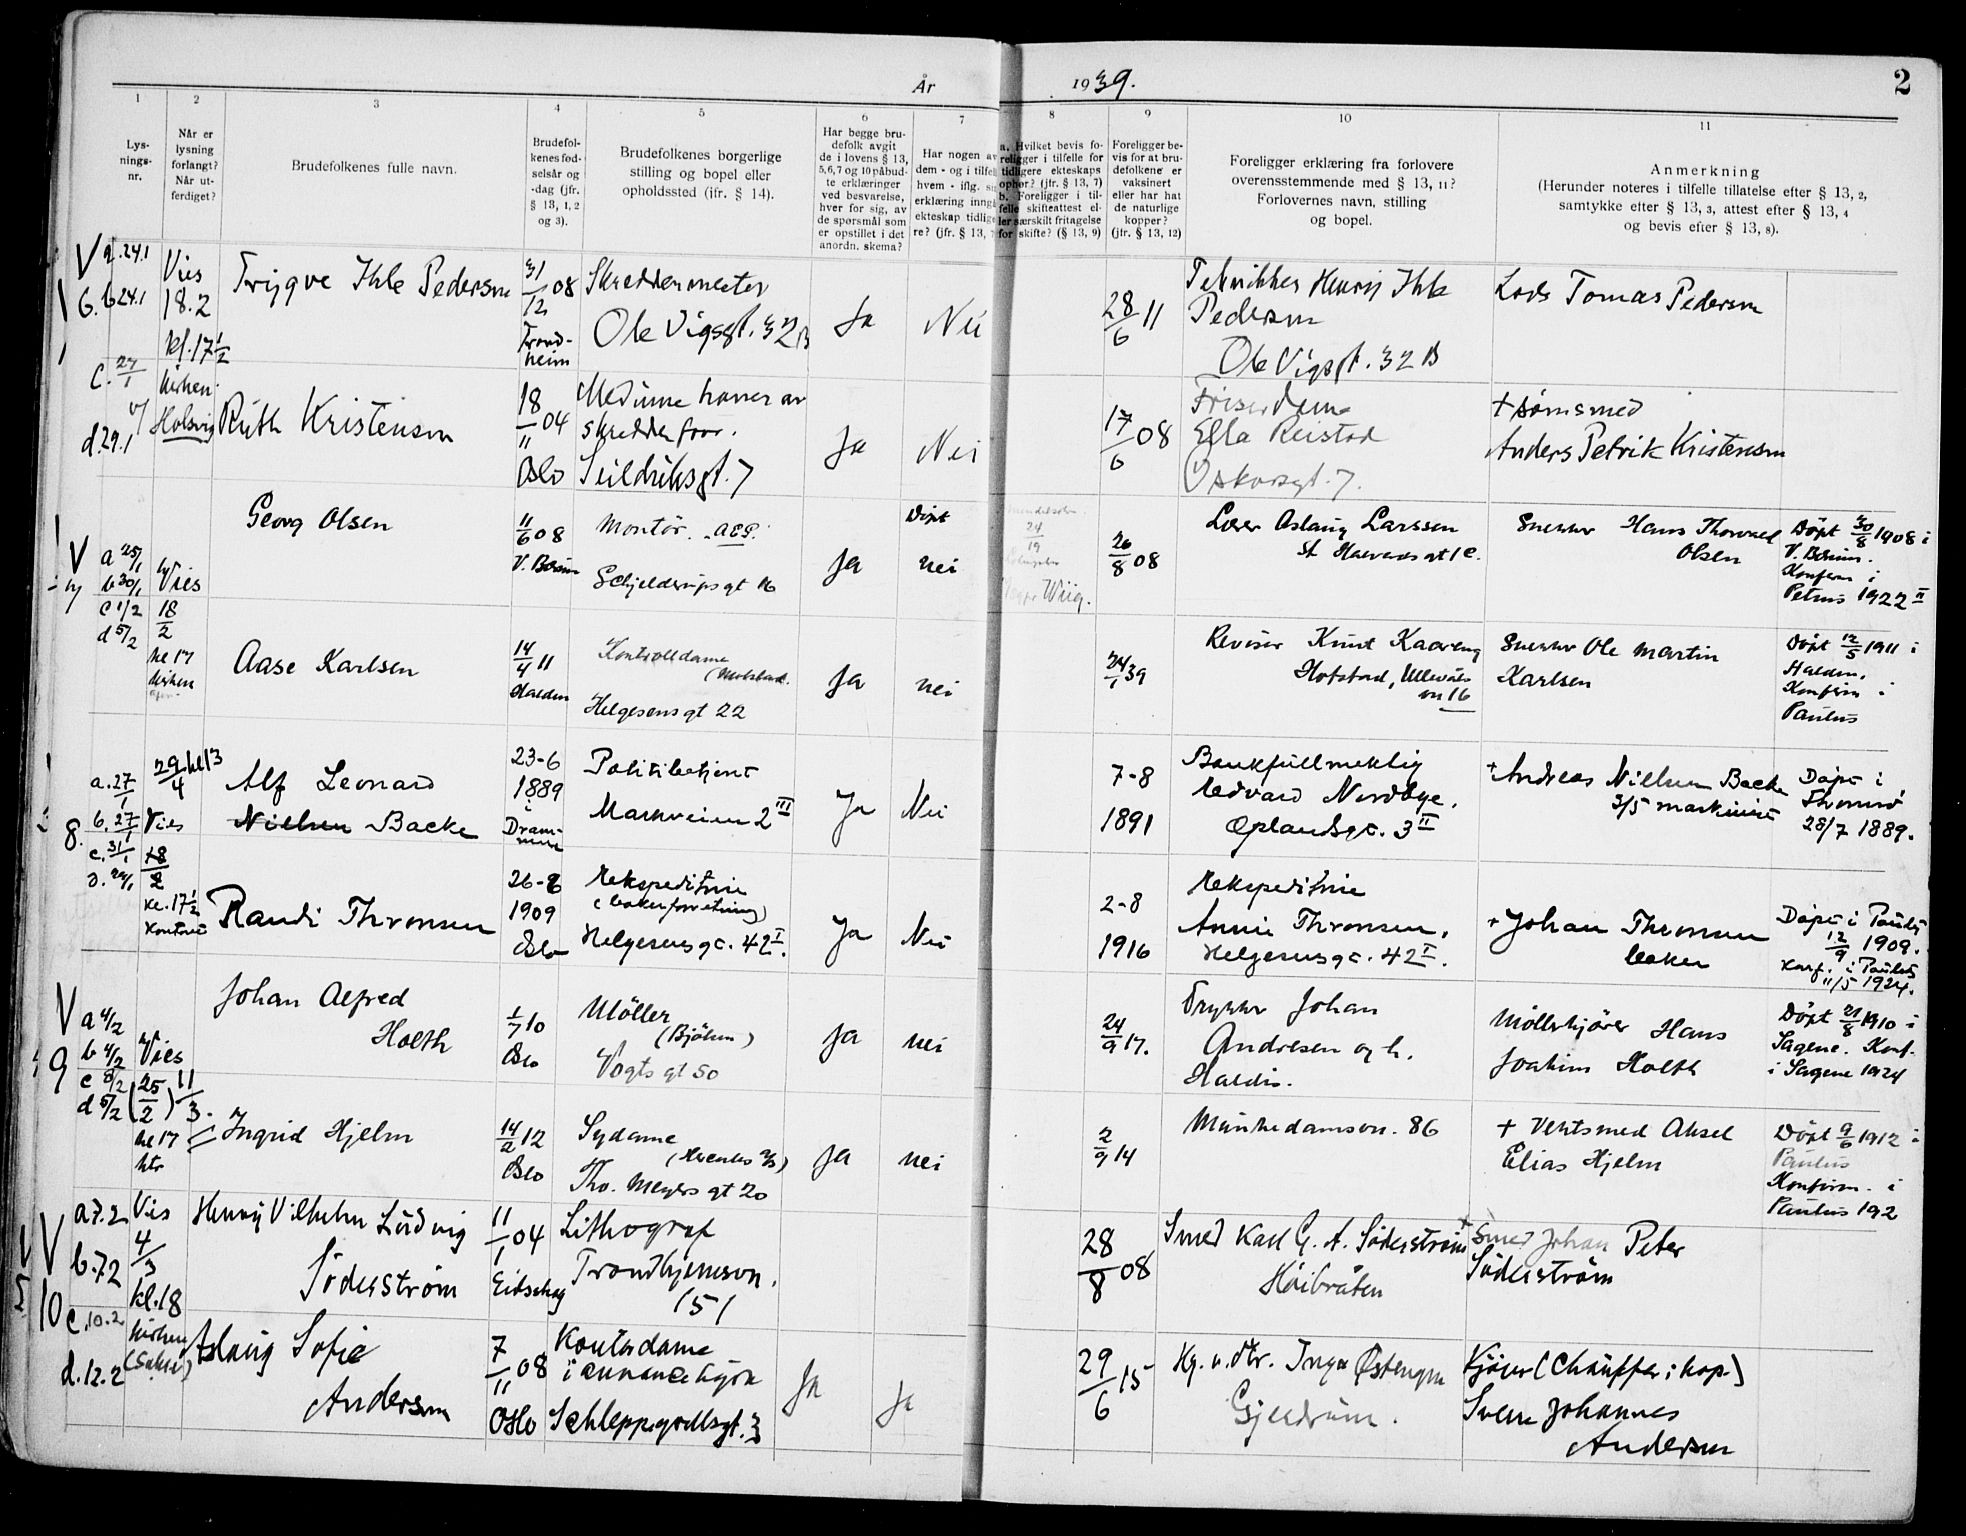 År
1939.
2
1
2
3
4
5
6
7
8
9
10
11
Lys-
nings-
nr.
Når er
lysning
forlangt?
Når ut-
ferdiget?
Brudefolkenes fulle navn.
Brudefol-
kenes fød-
selsår og
-dag (jfr.
§ 13, 1, 2
og 3).
Brudefolkenes borgerlige
stilling og bopel eller
opholdssted (ifr. § 14).
Har begge bru-
defolk avgit
de i lovens § 13,
5, 6, 7 og 10 påbud-
te erklæringer
ved besvarelse,
hver for sig, av
de spørsmål som
er opstillet i det
anordn. skema?
Har nogen av
dem - og i tilfelle
hvem - iflg.
erklæring inngå
ekteskap tidlige
re? (jfr. § 13, 7
a. Hvilket bevis fo-
religger i tilfelle for
tidligere ekteskaps
ophør? (jfr. § 13, 7)
b. Foreligger i til-
felle skifteattest el-
ler særskilt fritagelse
for skifte? (§ 13, 9)
Foreligger be-
vis for at bru-
defolkene er
vaksinert
eller har hat
de naturlige
kopper?
(jfr. § 13, 12)
Foreligger erklæring fra forlovere
overensstemmende med § 13, 11?
Forlovernes navn, stilling
og bopel.
Anmerkning
(Herunder noteres i tilfelle tillatelse efter § 13, 2,
samtykke efter § 13, 3, attest efter § 13, 4
og bevis efter § 13, 8).
V a. 24.1
6. b 24.1
c. 27/1
d. 29.1
Vies
18.2
kl. 17 1/2
kirken
Trygve Ihle Pedersen
31/12 08
Trond-
heim
Skreddermester
Ole Vigsgt. 32 B
Ja
Nei
28/6 11
Henry Ihle
Pedersen
Ole Vigsgt. 32 B
Lods Tomas Pedersen
Ruth Kristensen
18/11 04
Oslo
Seildriksgt. 7
Ja
Nei
17/6 08
Friserdame
Ella Reistad
Oskarsgt. 7.
+
Anders Petrik Kristensen
V
7
a 25/1
b 30/1
c 1/2
d 5/2
Vies
18/2
kl 17
kirken
Georg Olsen
11/6 08
V. Bærum
Montør. AEG.
Schjelderupsgt 16
Ja
Døpt
nei
26/8 08
Aslaug Larssen
St Halvardsgt 1 c.
Snekker Hans Thorvald
Olsen
Døpt 30/8 1908 i
V. Bærum.
Konfirm i
Petrus 1922 II
Aase Karlsen
14/4 11
Halden
Kontrolldame
Helgesensgt 22
Ja
nei
24/1 39
Revisor Knut Kaareng
Hofstad, Ullevåls
vn 16
Snekker Ole Martin
Karlsen
Døpt 12/5 1911 i
Halden.
Konfirm i
Paulus
8.
a. 27/1
b. 27/1
c. 31/1
29/4 kl 13
Vies
18/2
kl. 17 1/2
Kontoret
Alf Leonard
Nielsen Backe
23-6
1889
i
Dram-
men
Politibetjent
Markveien 2 III
Ja
Nei
7-8
1891
Bankfullmektig
Edvard Nordbye.
Oplandsgt. 3 II
+ Andreas Nielsen Backe
maskinist
Døpt i
28/7 1889.
Randi Thronsen
26-8
1909
Oslo
Ekspeditrise
(bakerforretning)
Helgesensgt. 42 I.
Ja
Nei
2-8
1916
Ekspeditrise
Annie Thronsen,
Helgesensgt. 42 I.
+ Johan Thronsen
baker
Døpt i Paulus
12/9 1909.
Konf. i Paulus
11/5 1924.
V
9
a 4/2
b 4/2
c 8/2
d 5/2
Vies
(25/2) 11/3.
kl 17
ktr
Johan Alfred
Holth
1/7 10
Oslo
Møller
(Bjølsen)
Vogts gt 50
Ja
nei
24/9 17.
Trykker Johan
Andresen og h.
Haldis.
Møllerkjører Hans
Joakim Holth
Døpt 21/8 1910 i
Sagene. Konf.
i Sagene 1924
Ingrid Hjelm
14/2 12
Oslo
Sydame
Tho. Meyers gt 20
Ja
nei
2/9 14
Munkedamsvn. 86
+ Verktsmed Aksel
Elias Hjelm
Døpt 9/6 1912 i
Paulus
Konfirm. i
Paulus 192
V
10
a 7.2
b. 7.2
c. 10.2
d. 12.2
Vies
4/3
kl. 18
kirken
Henry Vilhelm Ludvig
Söderström
11/1 04
Lithograf
Trondhjemsvn.
151
28/8 08
Smed Karl G. A. Söderström
Høibråten
+ Smed Johan Peter
Söderström
Aslaug Sofie
Andersen
7/11 08
Oslo
Kontordame
i annonce byrå
Schleppegrellsgt. 3
Ja
Ja
29/6 15
Inga Østengen
Gjerdrum.
Kjører (Chauffør i kop.)
Svenn Johannes
Andersen